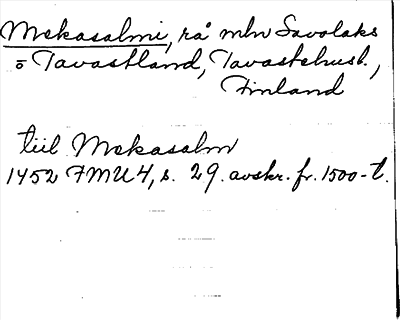 Mekasalmi, rå mln Savolaks
o Tavastland, Tavastehusl.,
Finland
tiil Mekasalm
1452 FMU 4, s. 29. avskr. fr. 1500-t.